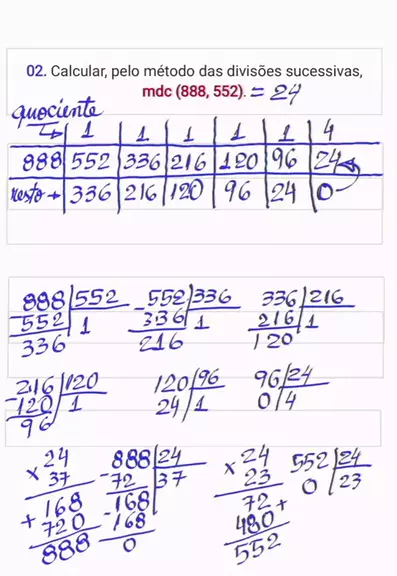 02. Calcular, pelo método das divisões sucessivas,
mdc (888, 552). = 24
quociente
↳ 1 1 1 1 1 4
888 552 336 216 120 96 24
resto → 336 216 120 96 24 0
888 552 -552 336 336 216
-552 1 336 1 216 1
336 216 120
216 120 120 96 96 24
-120 1 24 1 0 4
96
24 888 24 24 552 24
× 37 -72 37 × 23 0 23
168 -168 72 +
+ 720 -168 480
888 0 552